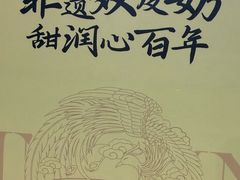 非遗双皮奶
甜润心百年